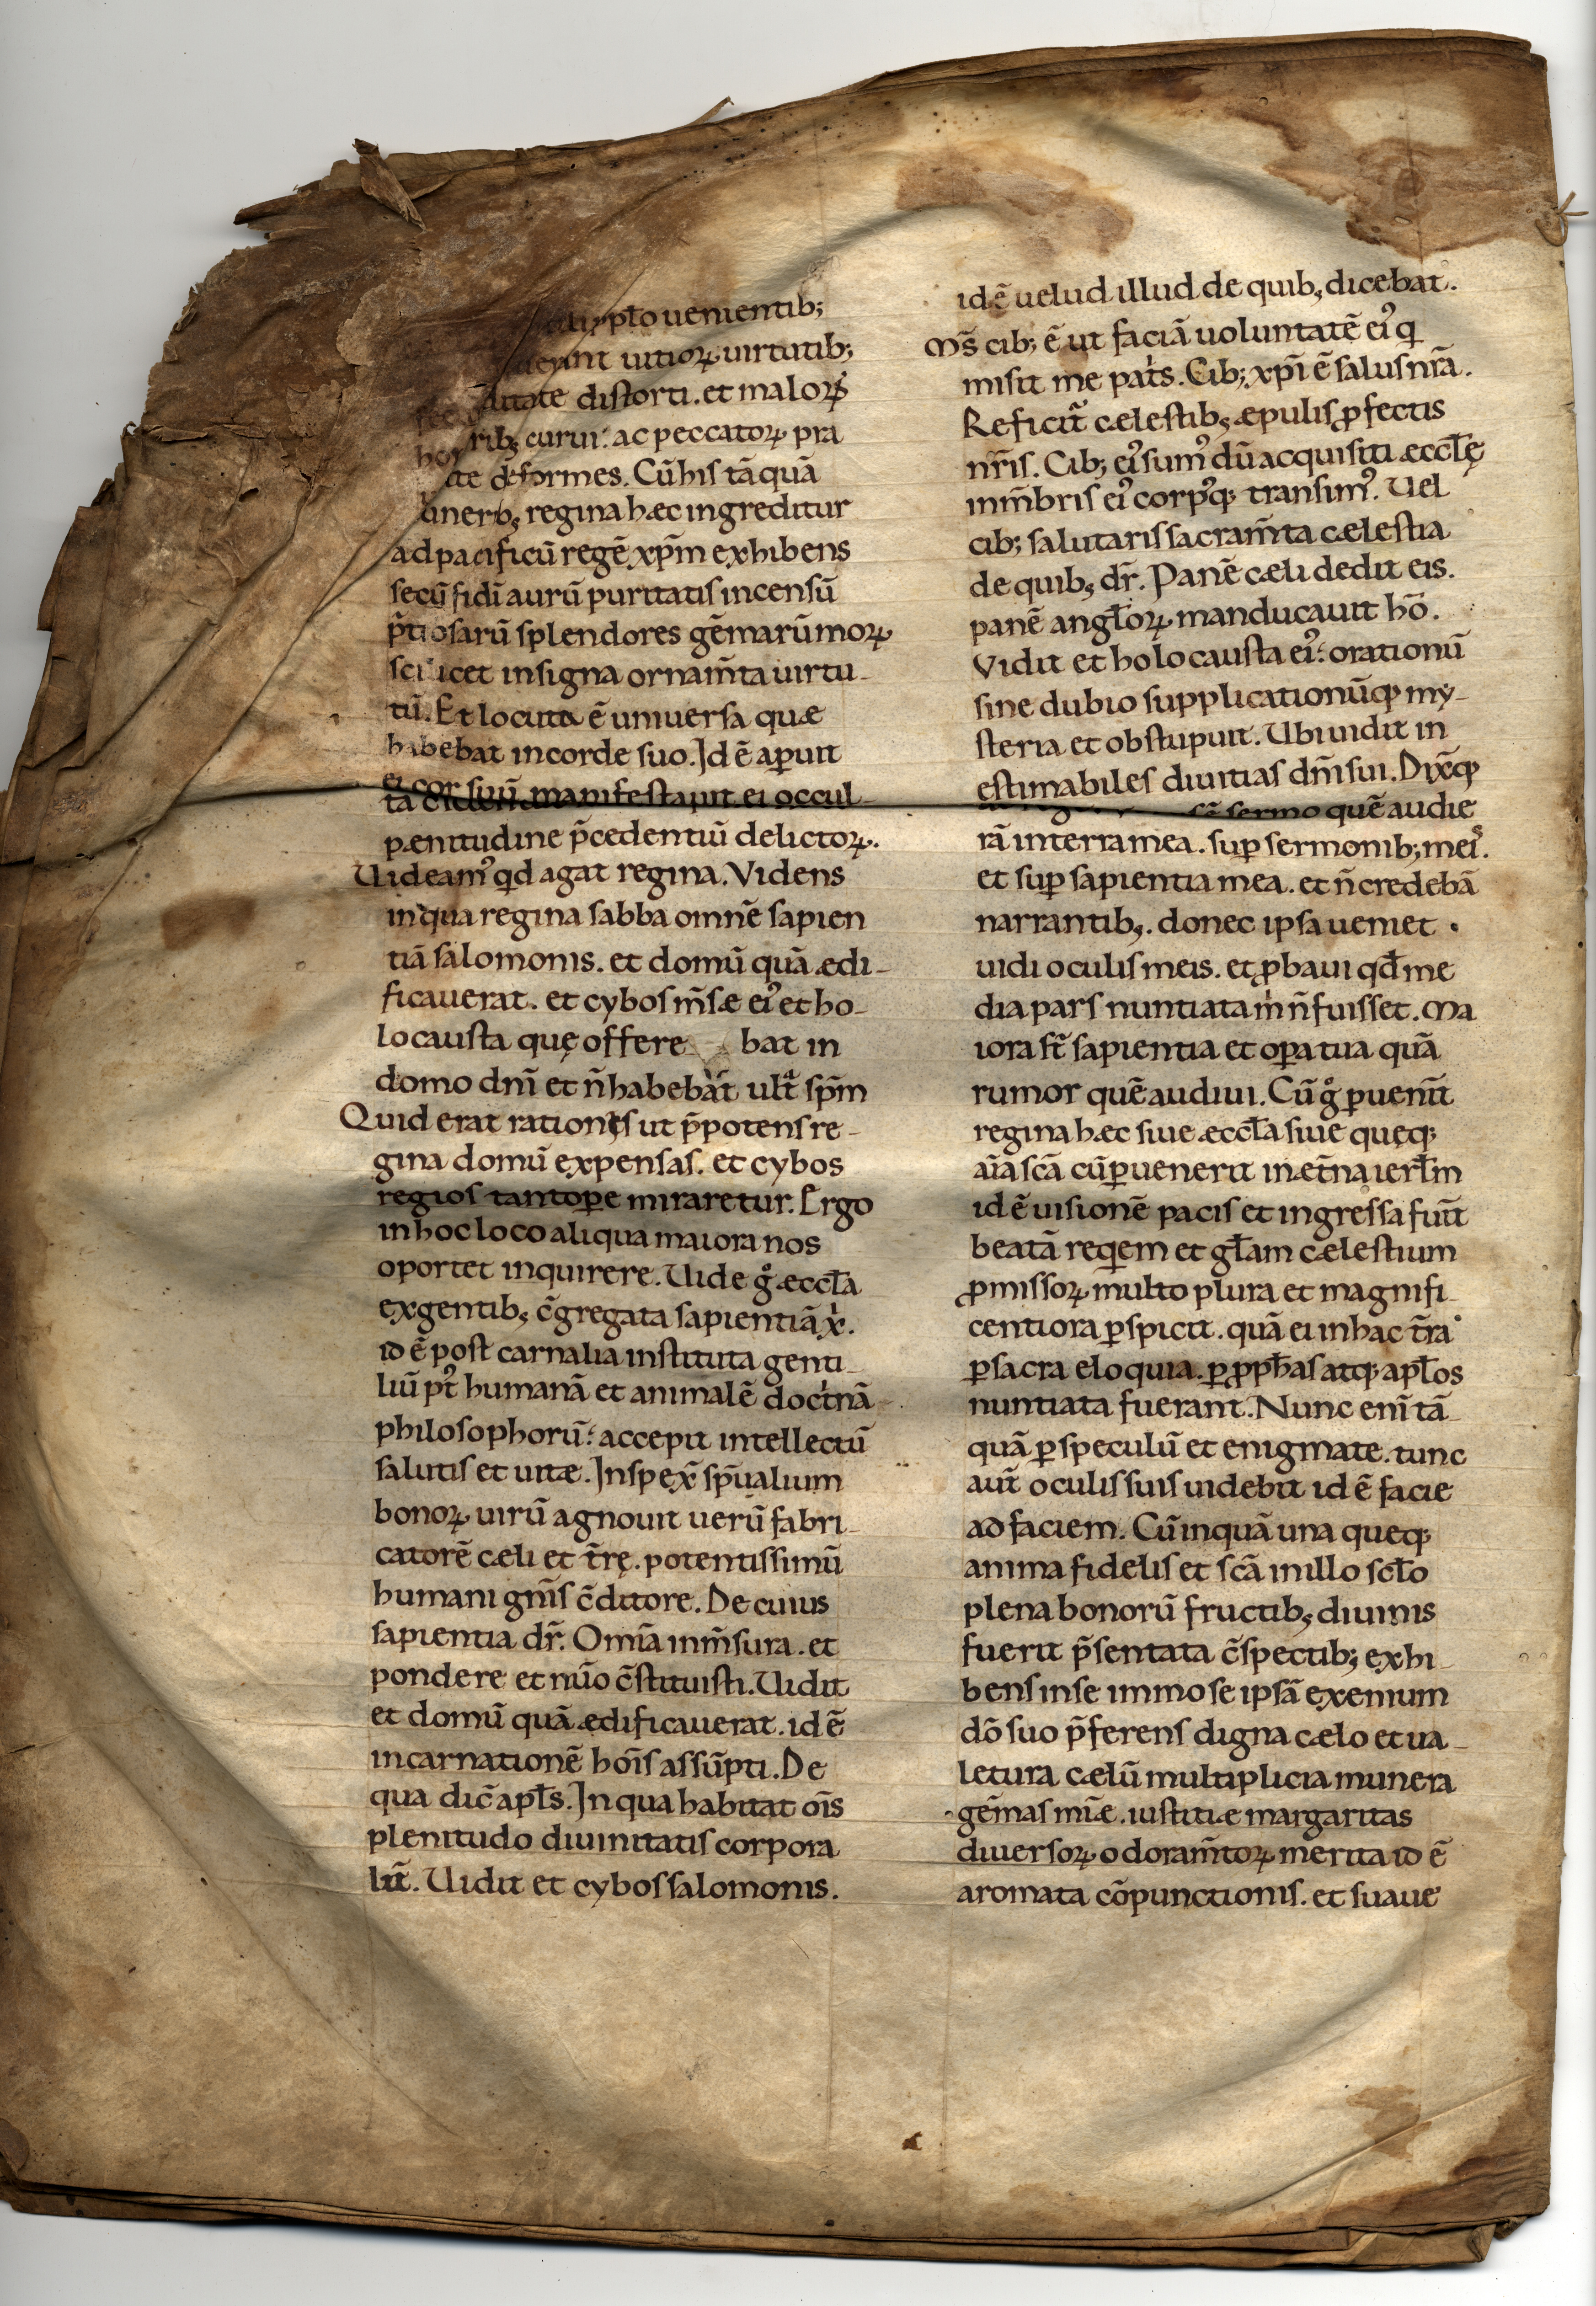 uenientib;
uitioꝝ uirtutib;
distorti. et maloꝝ
rib; curui: ac peccatoꝝ pra
te deformes. Cū his tā quā
munerib; regina hæc ingreditur
ad pacificū regē xp̄m exhibens
secū fidī aurū puritatis incensū
p̄tiosarū splendores gēmarū moꝝ
scilicet insigna ornam̄ta uirtu-
tū. Et locuta ē uniuersa quæ
habebat in corde suo. Id ē aꝑuit
ei cor suū manifestauit ei occul-
pænitudine p̄cedentiū delictoꝝ.
Uideam᾿ qd agat regina. Videns
inqua regina sabba omnē sapien
tiā salomonis. et domū quā ædi-
ficauerat. et cybos m̄sæ ei᾿ et ho-
locausta quę offere bat in
domo dnī et n̄ habebat ult͛ sp̄m
Quid erat rationis ut p̄potens re-
gina domū expensas. et cybos
regios tantoꝑe miraretur. Ergo
in hoc loco aliqua maiora nos
oportet inquirere. Uide g̊ æccła
ex gentib; c̄gregata sapientiā x̓.
id ē post carnalia instituta genti-
liū p᾿t humanā et animalē doct̓nā
philosophorū: accepit intellectū
salutis et uitæ. Inspex̄ sp̄ualium
bonoꝝ uirū agnouit uerū fabri-
catorē cæli et t̄rę. potentissimū
humani gn̄is c̄ditore. De cuius
sapientia dr̄. Om̄ia in m̄sura. et
pondere et nūo c̄stituisti. Uidit
et domū quā ædificauerat. id ē
incarnationē hoīs assūpti. De
qua dic̄ apłs. In qua habitat oīs
plenitudo diuinitatis corpora
lit̄. Uidit et cybos salomonis.
id ē uelud illud de quib; dicebat.
Ms̄ cib; ē ut faciā uoluntatē ei᾿ q
misit me pat̓s. Cib; xp̄i ē salus nr̄a.
Reficit͛ cælestib; æpulis ꝓfectis
nr̄is. Cib; ei᾿ sum᾿ dū acquisiti æccłę
in m̄bris ei᾿ corp᾿q; transim᾿. Uel
cib; salutaris sacram̄ta cælestia
de quib; dr̄. Panē cæli dedit eis.
panē angłoꝝ manducauit hō.
Vidit et holocausta ei᾿: orationū
sine dubio supplicationūq; my-
steria et obstupuit. Ubi uidit in
estimabiles diuitias dm̄i sui. Dix̄q;
sermo quē audie
rā in terra mea. suꝑ sermonib; meis.
et suꝑ sapientia mea. et n̄ credebā
narrantib;. donec ipsa ueniet.
uidi oculis meis. et ꝓbaui qđ me
dia pars nuntiata m̓ n̄ fuisset. Ma
iora st̄ sapientia et oꝑa tua quā
rumor quē audiui. Cū g̊ ꝑuenit̄
regina hæc siue æccła siue quęq;
aīa scā cū ꝑuenerit in æt̄na ierłm
id ē uisionē pacis et ingressa fuit̄
beatā reqem et głam cælestium
ꝓmissoꝝ multo plura et magnifi-
centiora ꝑspicit. quā ei in hac t̄ra
ꝑ sacra eloquia. ꝑ ꝓph̄as atq; apłos
nuntiata fuerant. Nunc enī tā-
quā ꝑ speculū et enigmate. tunc
aut̄ oculis suis uidebit id ē facie
ad faciem. Cū inquā una queq;
anima fidelis et scā in illo scło
plena bonorū fructib; diuinis
fuerit p̄sentata c̄spectib; exhi-
bens in se immo se ipsā exenium
dō suo p̄ferens digna cælo et ua-
letura cælū multiplicia munera
gem̄as mīæ. iustitiæ margaritas
diuersoꝝ odoram̄toꝝ merita id ē
aromata cōpunctionis. et suaue